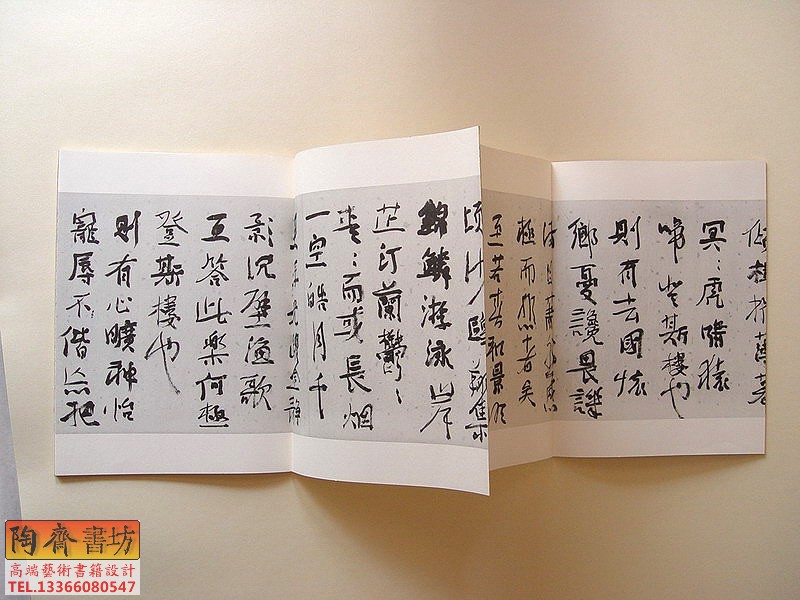 冥〻虎嘯猿
啼登斯樓也
則有去國懷
鄉憂讒畏譏
極而悲者矣
至若春和景明
頃沙鷗翔集
錦鱗游泳岸
芷汀蘭鬱〻
青〻而或長烟
一空皓月千
影沉璧漁歌
互答此樂何極
登斯樓也
則有心曠神怡
寵辱不偕忘把
陶齋書坊
高端藝術書籍設計
TEL.13366080547